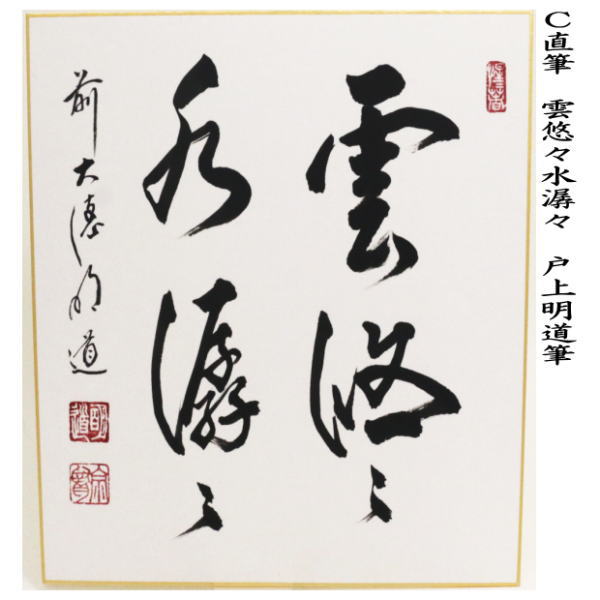 C直筆 雲悠々水潺々 戸上明道筆
雲悠々
水潺々
前大德明道
明道